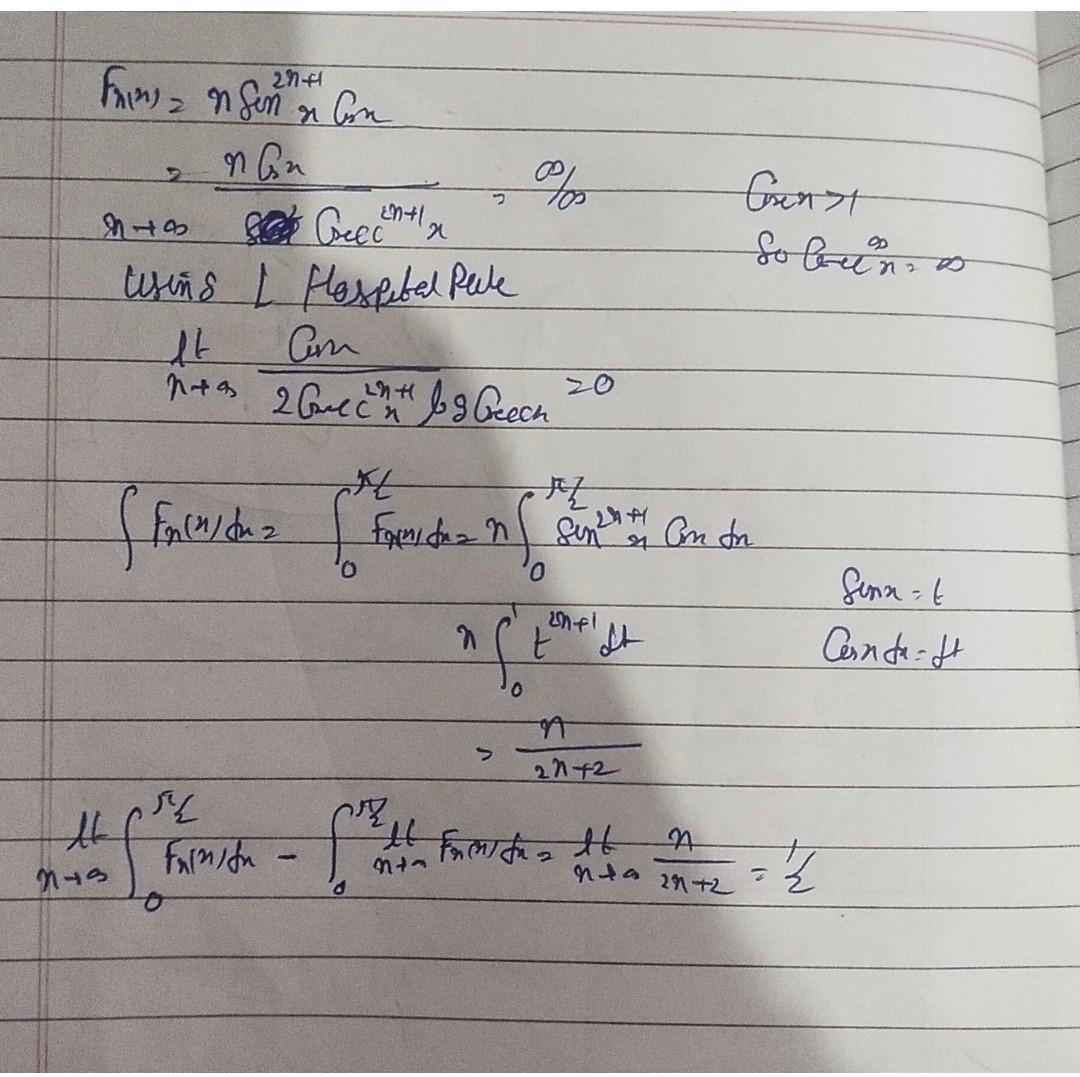 Fn(x) = n Sin^{2n+1} x Cos x
= \frac{n Cos x}{Cosec^{2n+1} x} = ∞/∞ Cosec x > 1
n→∞ So Cosec^∞ x = ∞
Using L Hospital Rule
lt_{n→∞} \frac{Cos x}{2 Cosec^{2n+1} x log Cosec x} = 0
∫ Fn(x) dx = ∫_0^{π/2} Fn(x) dx = n ∫_0^{π/2} Sin^{2n+1} x Cos x dx
Sin x = t
n ∫_0^1 t^{2n+1} dt Cos x dx = dt
= \frac{n}{2n+2}
lt_{n→∞} ∫_0^{π/2} Fn(x) dx - ∫_0^{π/2} lt_{n→∞} Fn(x) dx = lt_{n→∞} \frac{n}{2n+2} = 1/2